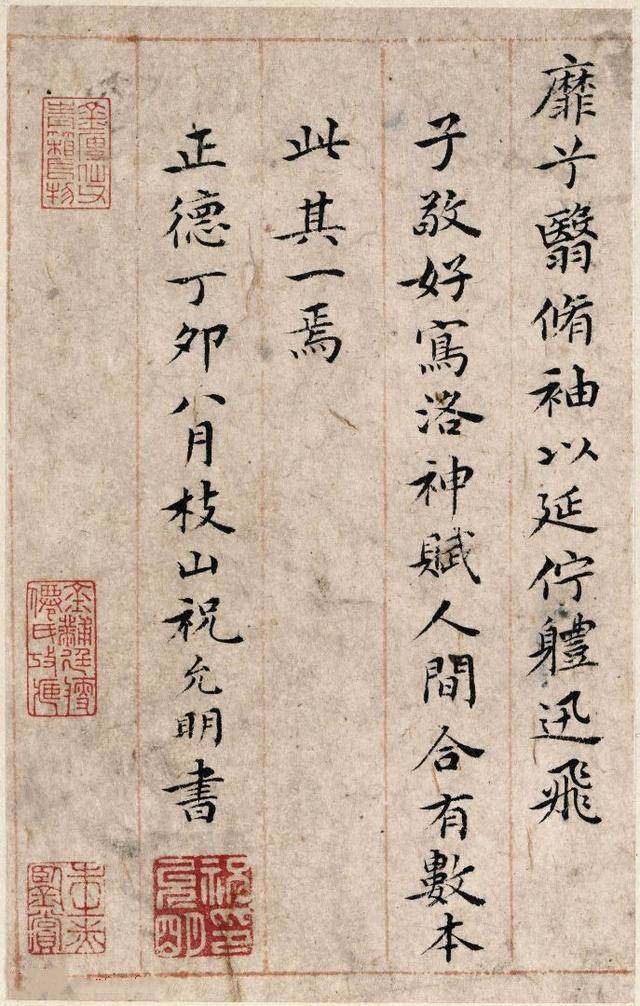 靡兮翳脩袖以延佇軆迅飛
子敬好寫洛神賦人間合有數本
此其一焉
正德丁卯八月枝山祝允明書
祝允明印